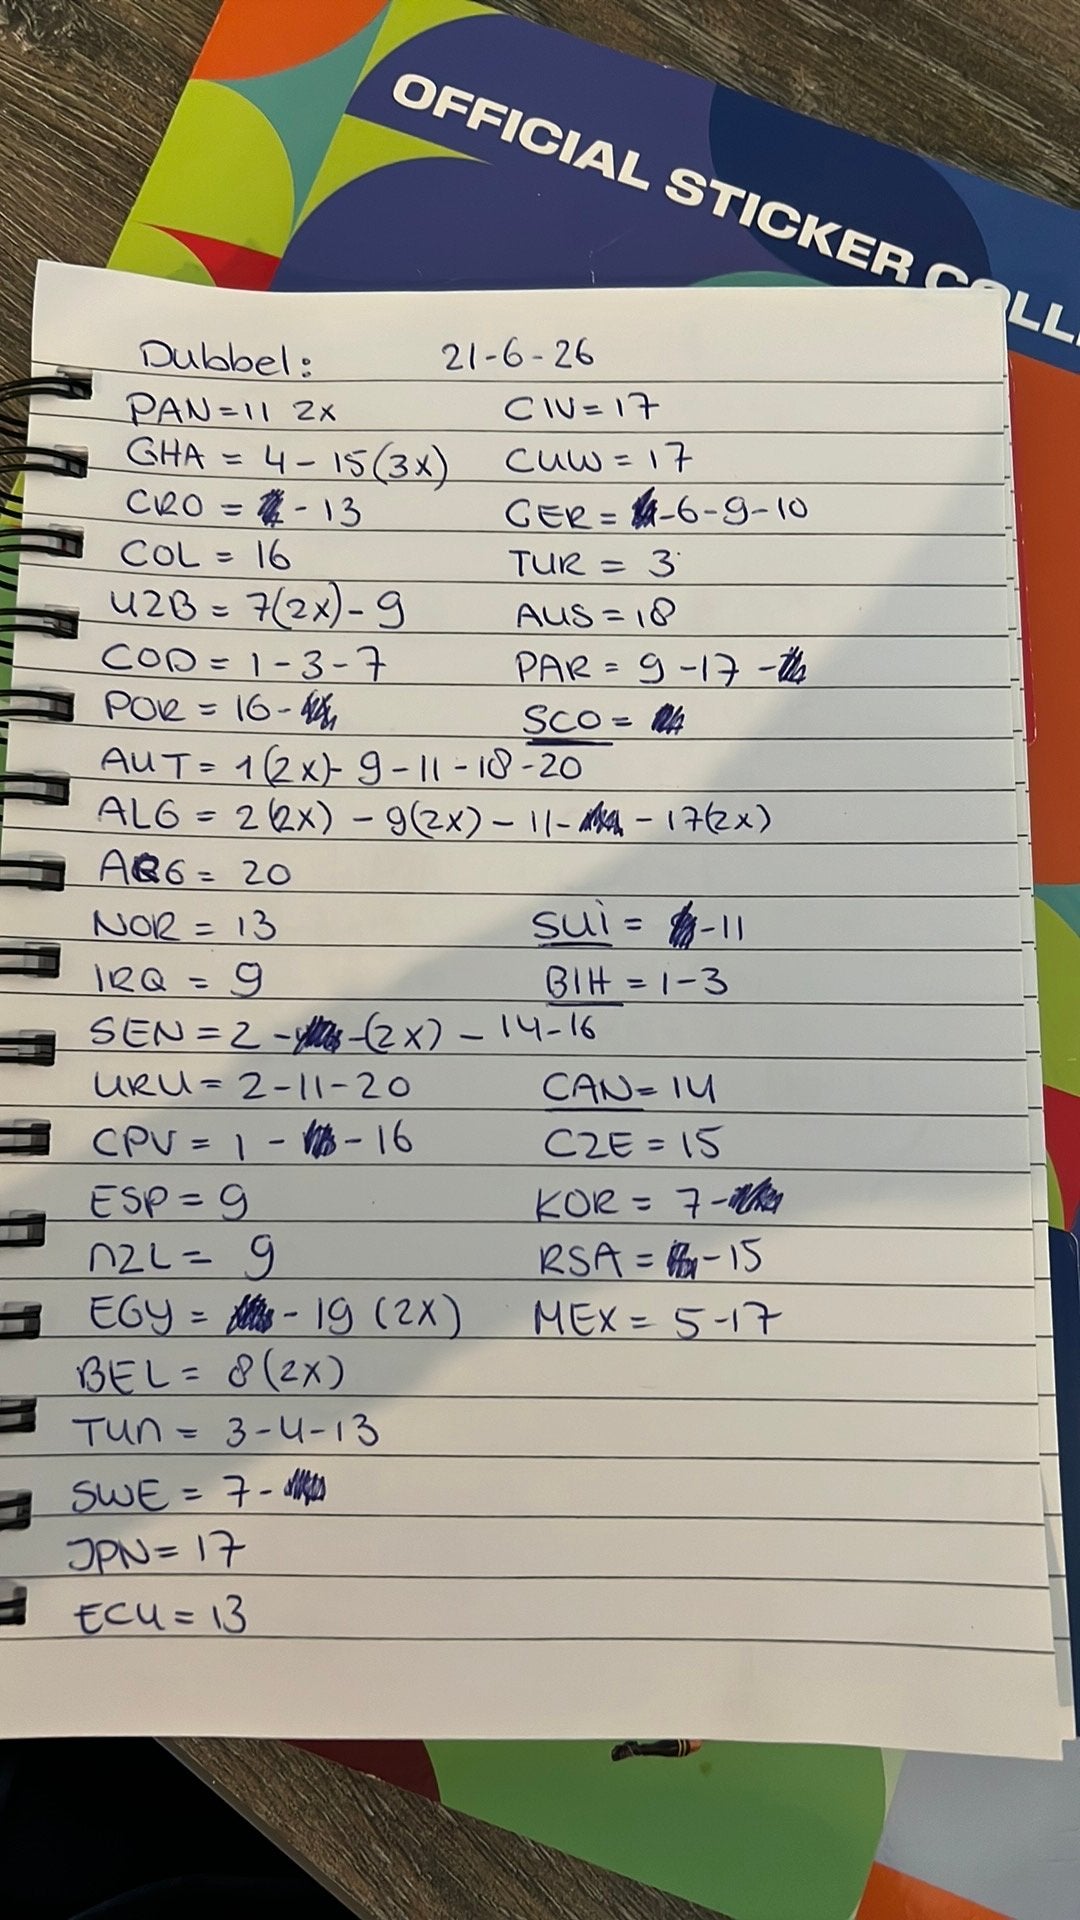 OFFICIAL STICKER COLL
Dubbel: 21-6-26
PAN=11 2x CIV=17
GHA = 4-15(3x) CUW=17
CRO = -13 GER= -6-9-10
COL = 16 TUR = 3
UZB = 7(2x)-9 AUS=18
COD = 1-3-7 PAR = 9-17-
POR = 16- SCO =
AUT= 1(2x)- 9-11-18-20
ALG = 2(2x) - 9(2x) - 11- - 17(2x)
ARG = 20
NOR = 13 SUI = -11
IRQ = 9 BIH = 1-3
SEN = 2 - -(2x) - 14-16
URU= 2-11-20 CAN= 14
CPV = 1 - -16 CZE = 15
ESP = 9 KOR = 7-
NZL = 9 RSA = -15
EGY = -19 (2x) MEX = 5-17
BEL = 8(2x)
TUN = 3-4-13
SWE = 7-
JPN= 17
ECU = 13